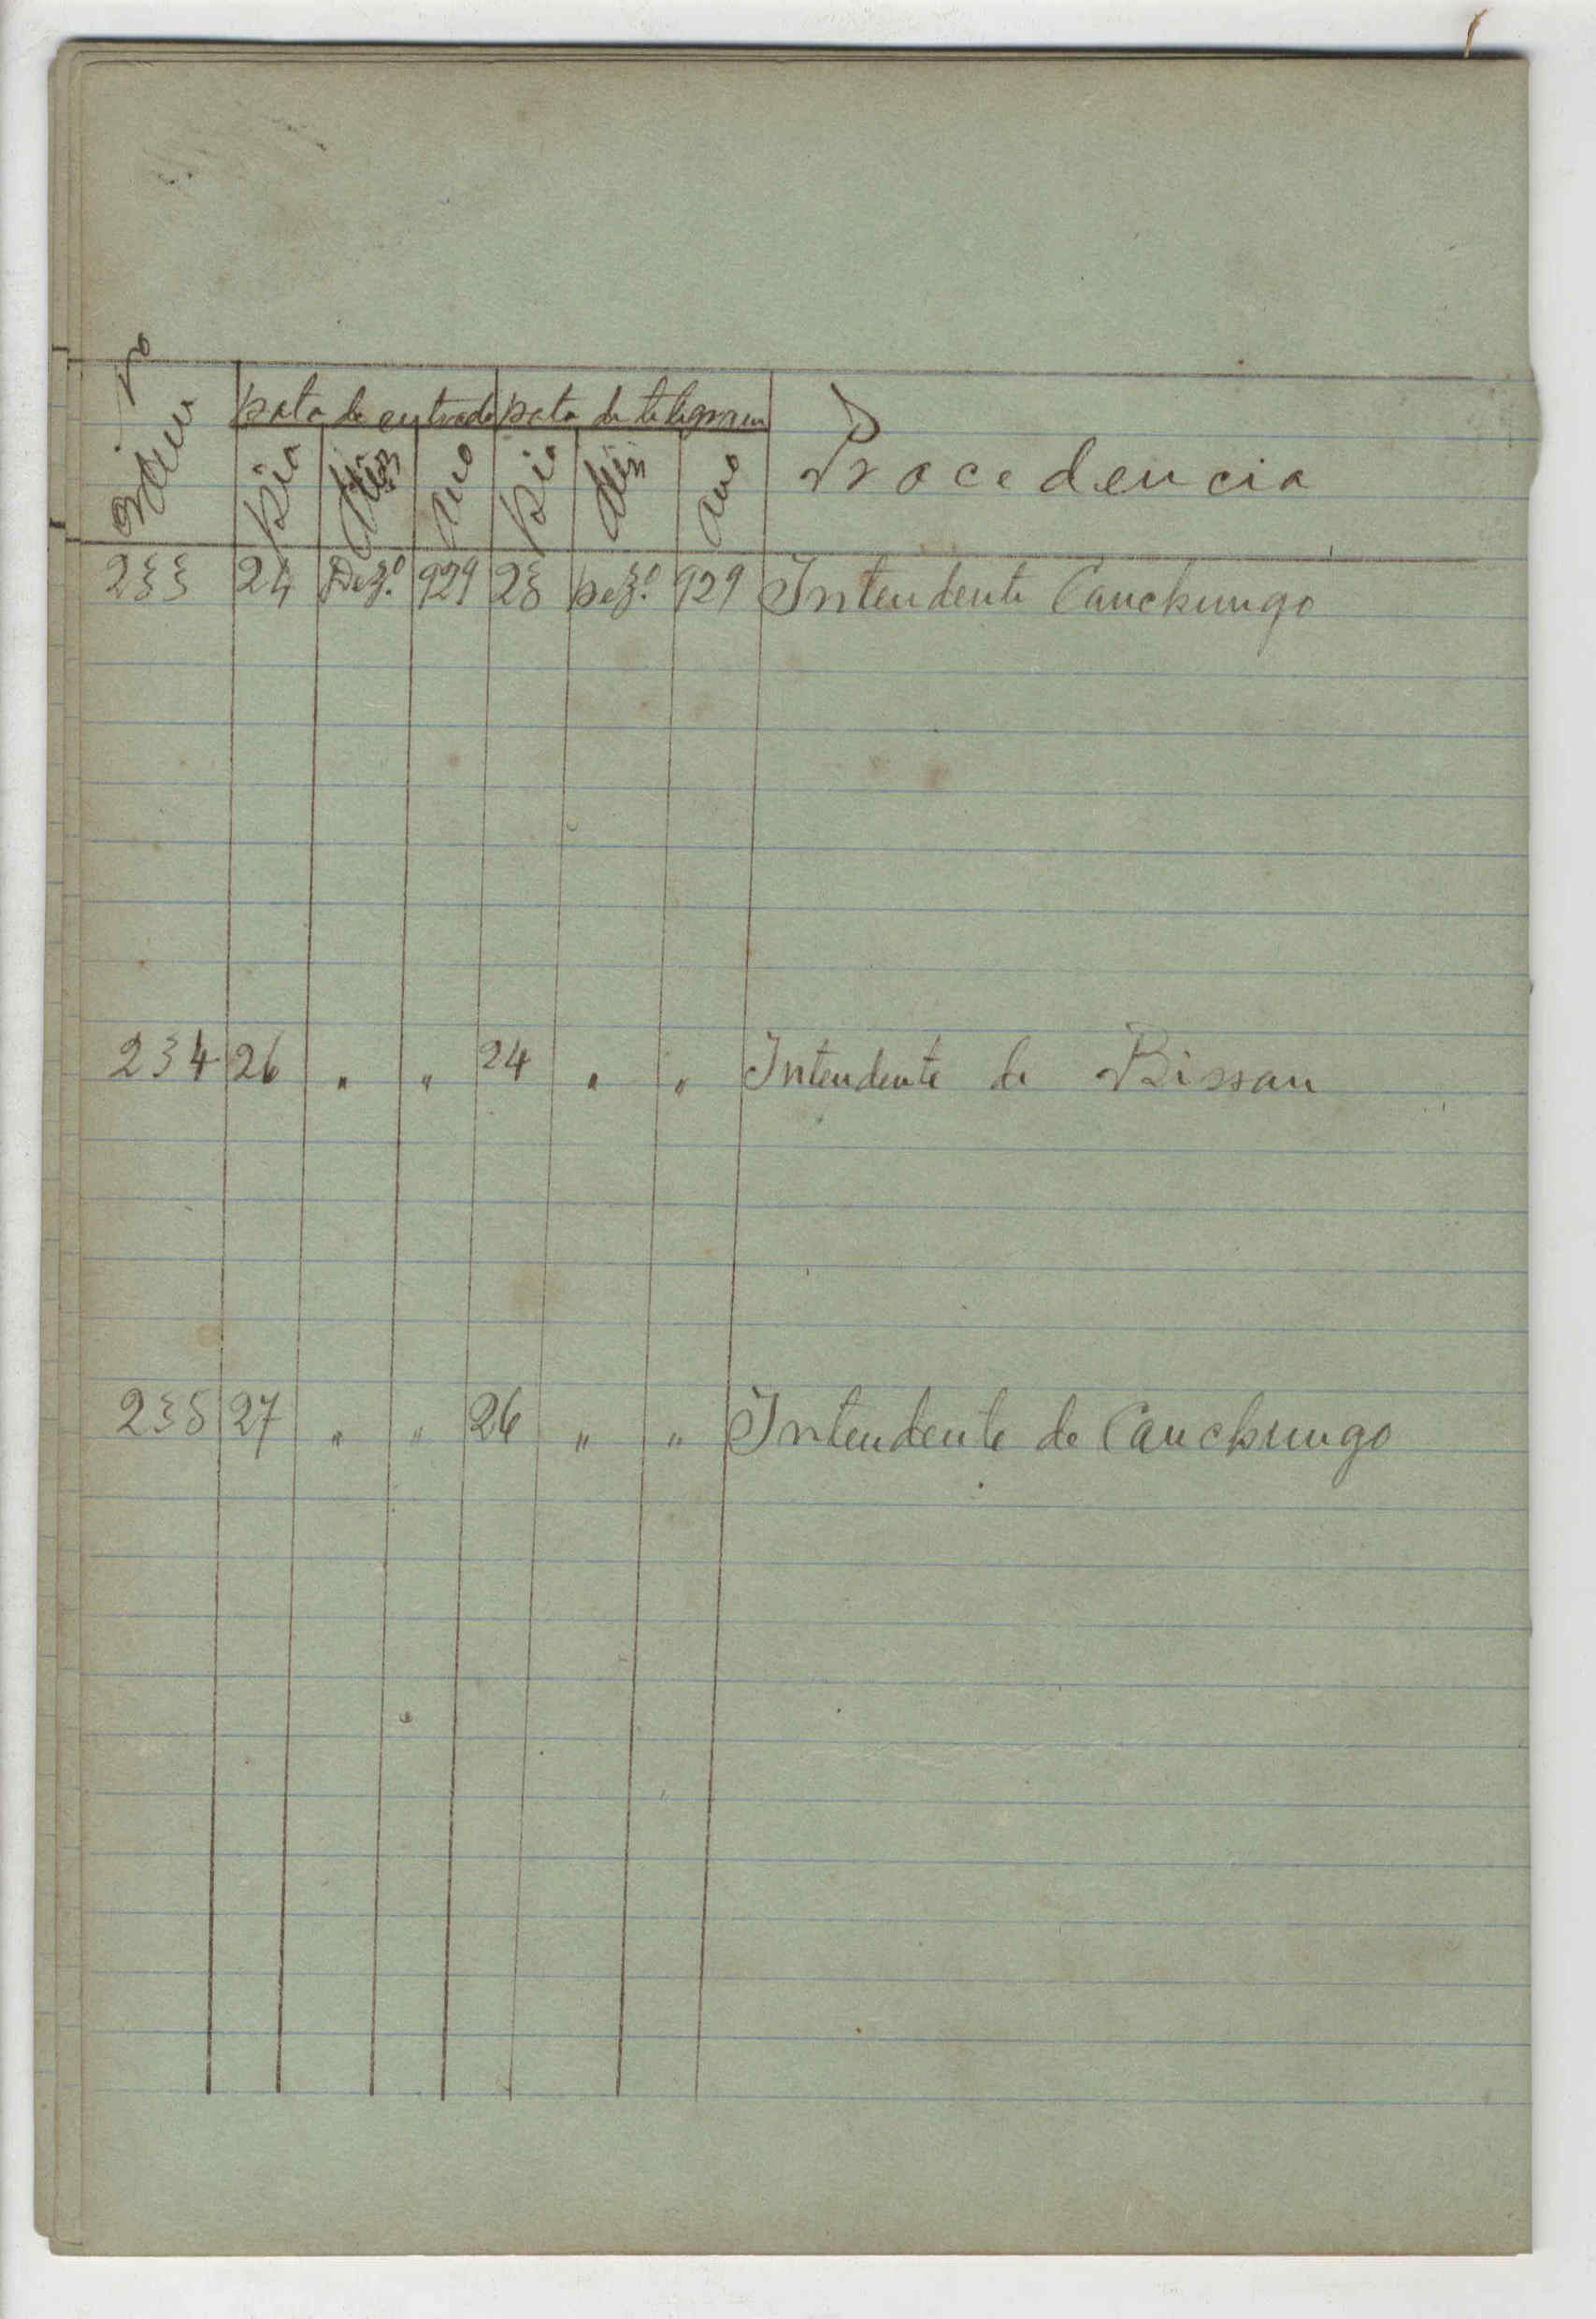 Nº Ordem
Data de entrada Data de telegrama Procedencia
Dia Mês Ano Dia Mês Ano
233 24 Dezº. 929 23 Dezº. 929 Intendente Canchungo
234 26 " " 24 " " Intendente de Bissau
235 27 " " 26 " " Intendente de Canchungo